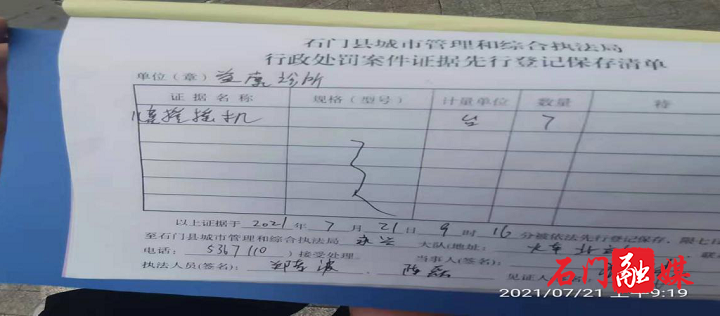 石门县城市管理和综合执法局
行政处罚案件证据先行登记保存清单
单位（章） 诊所
证据名称 规格（型号） 计量单位 数量 特
摇摇机 台 7
以上证据于 2021 年 7 月 21 日 9 时 16 分被依法先行登记保存，限七日
至石门县城市管理和综合执法局 永兴 大队(地址: 火车
电话: 5367110 ）接受处理。 当事人(签名):
执法人员(签名): 陈磊 见证人
石门融媒
2021/07/21 上午9:19